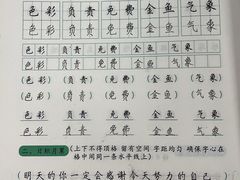 色 彩 负 责 免 费 金 鱼 气 象
色 彩 负 责 免 费 金 鱼 气 象
色 彩 负 责 免 费 金 鱼 气 象
色彩 负责 免费 金鱼 气象
(色彩)(负责)(免费)(金鱼)(气象)
色彩 负责 免费 金鱼 气象
(色彩)(负责)(免费)(金鱼)(气象)
色彩 负责 免费 金鱼 气象
二、日积月累 (上下不得顶格 留有空间 字距均匀 确保字心在
格中间同一条水平线上)
(明天的你一定会感谢今天努力的自己